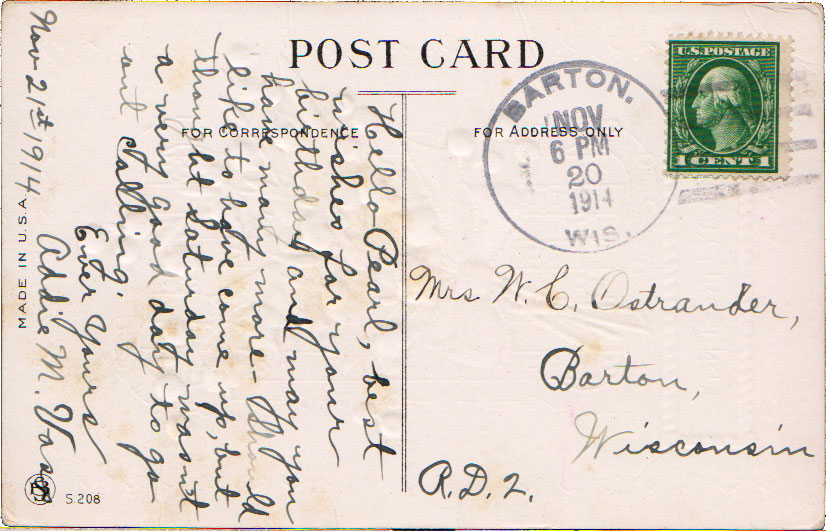 POST CARD
FOR CORRESPONDENCE
FOR ADDRESS ONLY
U.S. POSTAGE
1 CENTS 1
BARTON.
NOV
6 PM
20
1914
WIS.
Nov 21st 1914
Hello Pearl, best
wishes for your
birthday and may you
have many more - Should
like to have come up, but
thought Saturday wasn't
a very good day to go
out calling.
Ever Yours
Addie M. Voss
Mrs W. C. Ostrander,
Barton,
Wisconsin
R.D.2.
MADE IN U.S.A.
S.208